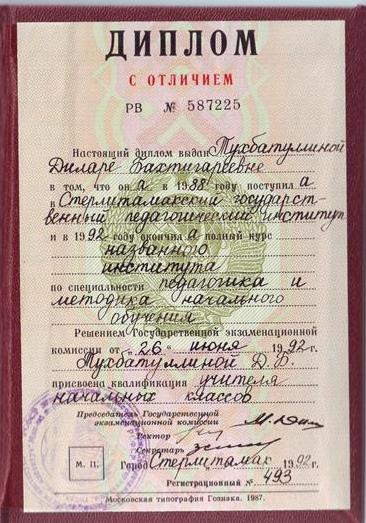 ДИПЛОМ
С ОТЛИЧИЕМ
РВ № 587225
Настоящий диплом выдан Тухбатуллиной
Диларе Бахтигареевне
в том, что он а в 1988 году поступил а
в Стерлитамакский государст-
венный педагогический институт
и в 1992 году окончил а полный курс
названного
института
по специальности педагогика и
методика начального
обучения
Решением Государственной экзаменационной
комиссии от "26" июня 1992 г.
Тухбатуллиной Д.Б.
присвоена квалификация учителя
начальных классов
Председатель Государственной
экзаменационной комиссии
Ректор
Секретарь
М. П.
Город Стерлитамак 1992 г.
Регистрационный № 493
Московская типография Гознака. 1987.